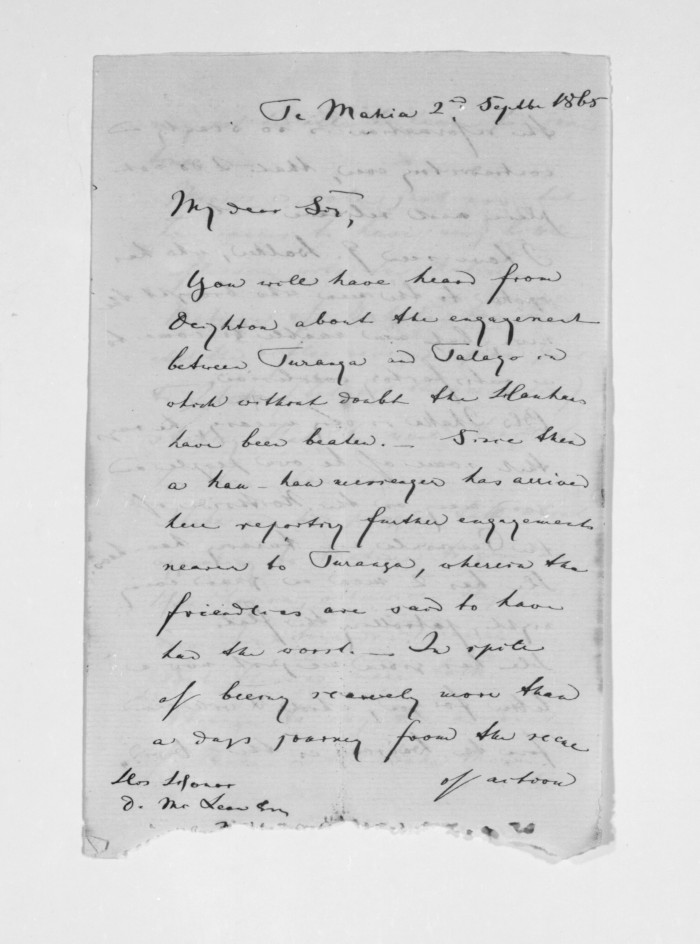 Te Mahia 2nd Septbr 1865
My dear Sir,
You will have heard from
Deighton about the engagement
between Turanga and Tologo in
which without doubt the Hauhaus
have been beaten. — Since then
a hau-hau messenger has arrived
here reporting further engagements
nearer to Turanga, wherein the
friendlies are said to have
had the worst. — In spite
of being scarcely more than
a days journey from the scene
of action
His Honor
D. McLean Esq